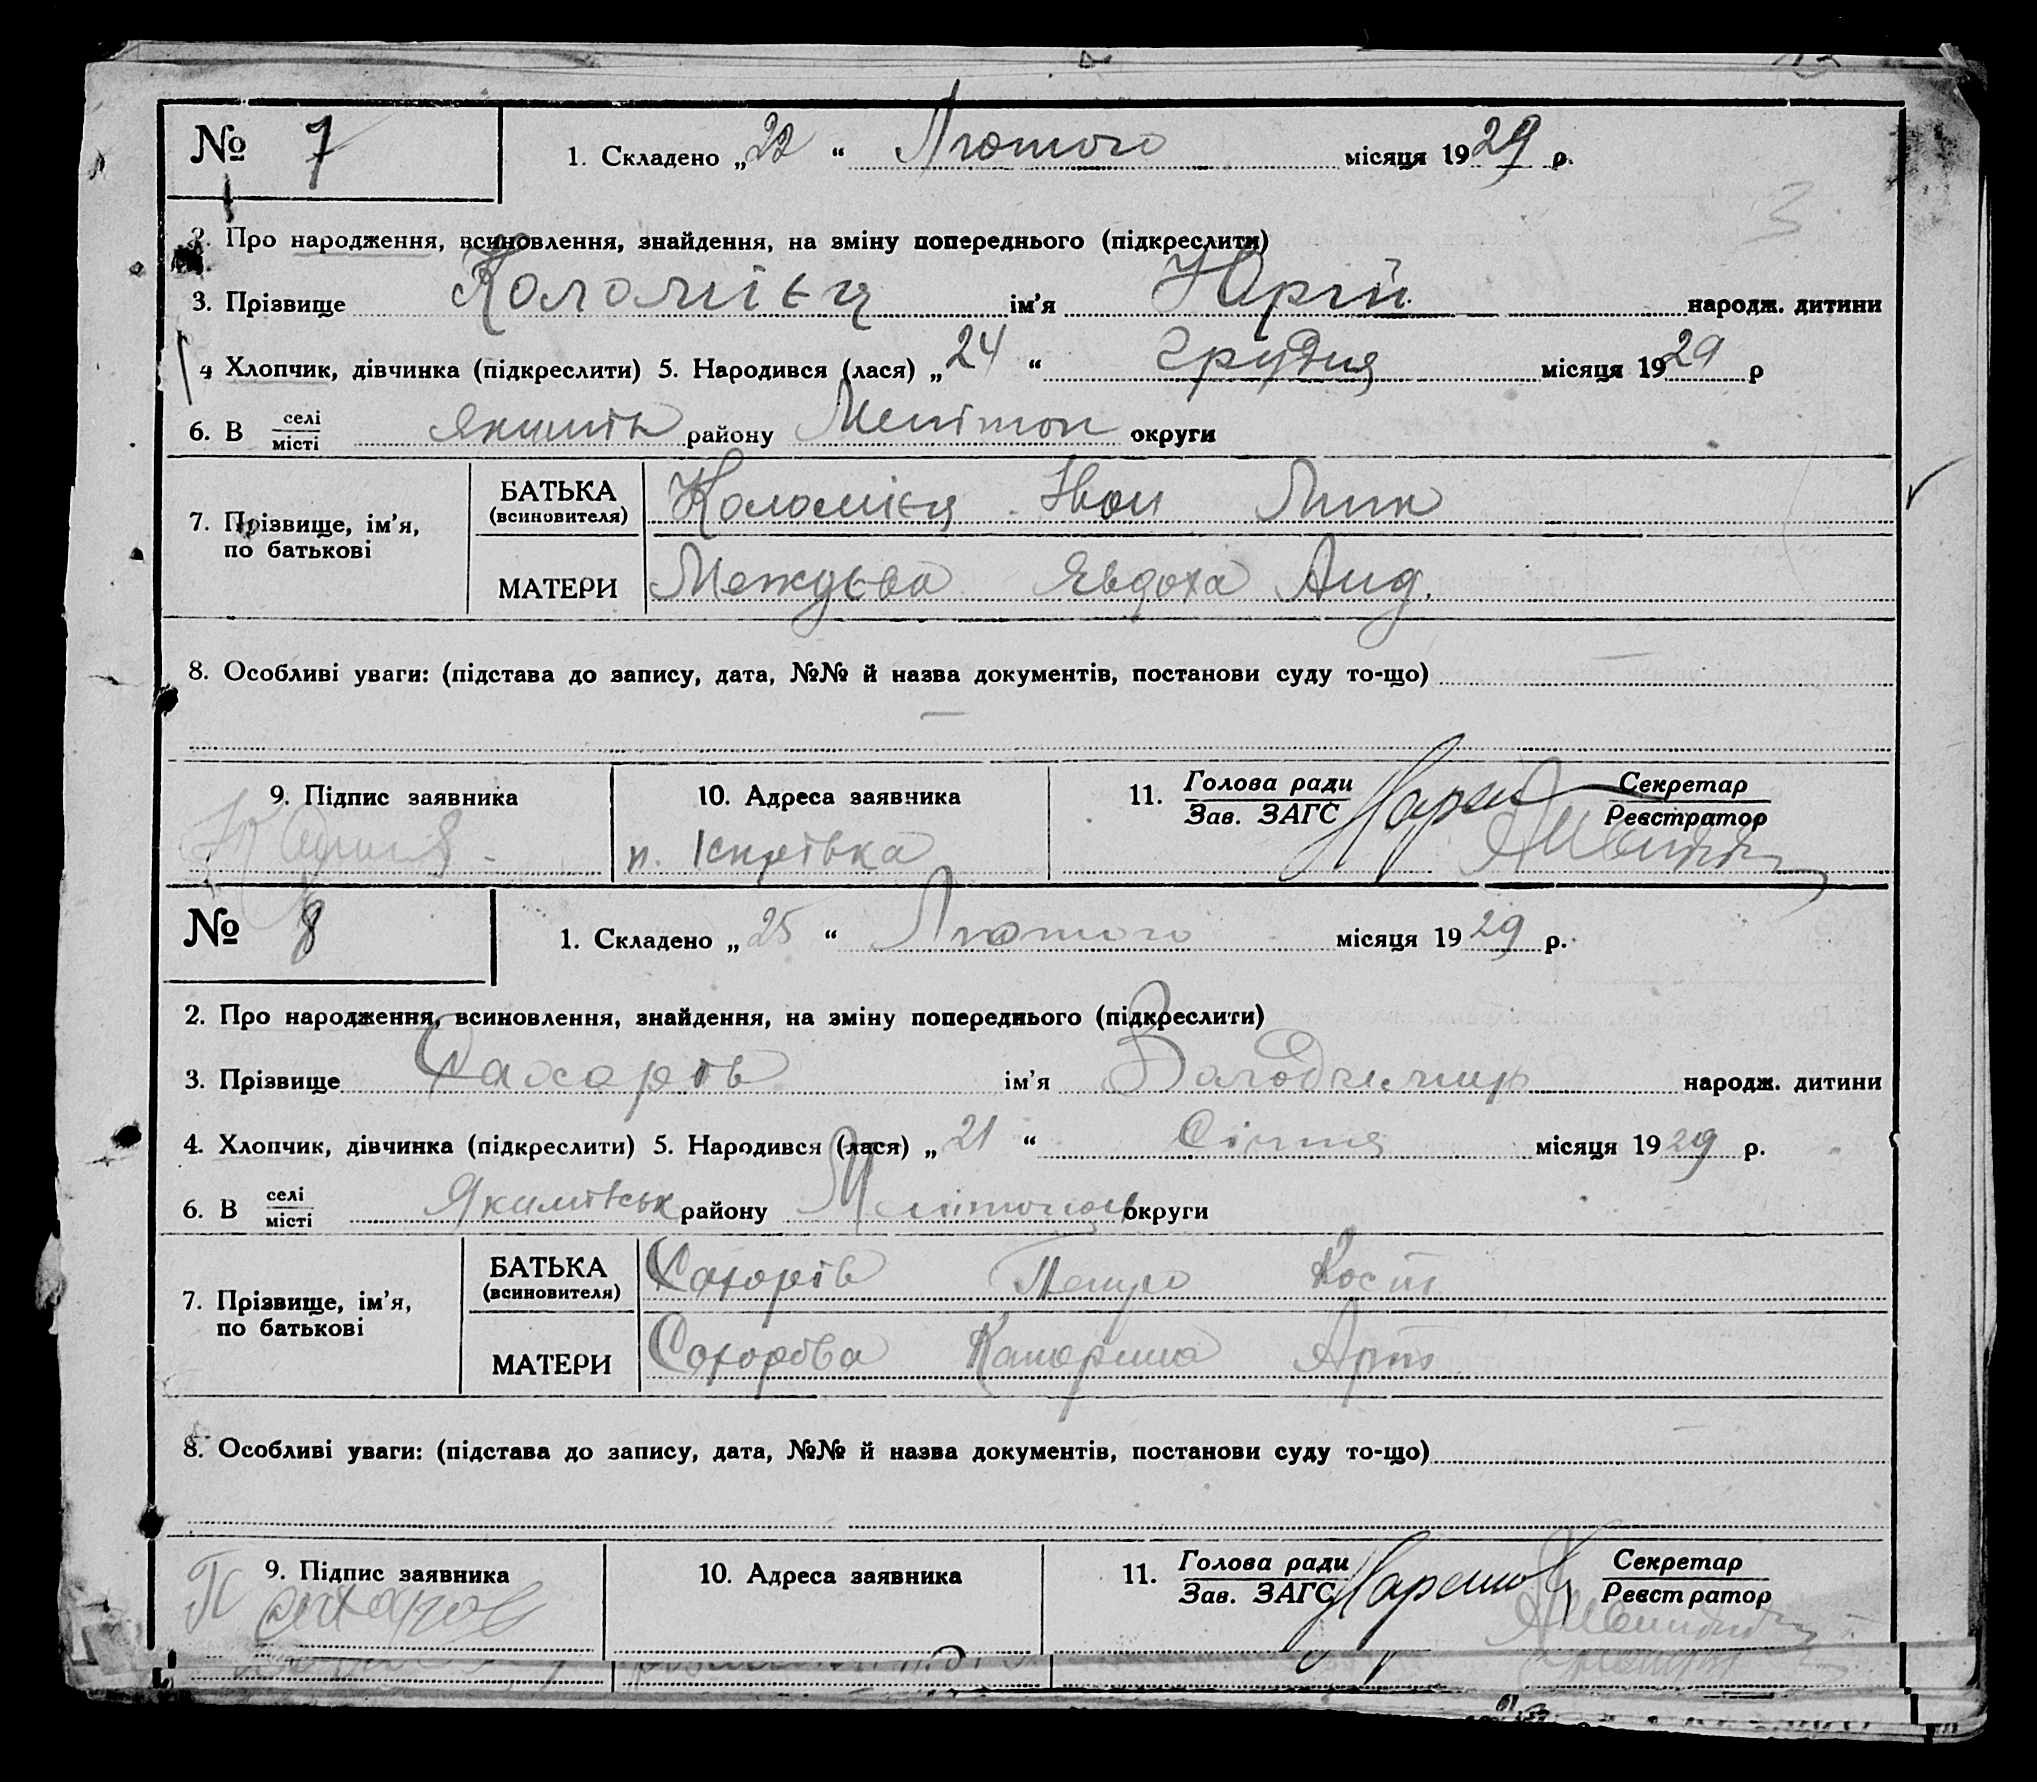 № 7 1. Складено „22“ Лютого місяця 1929 р.
2. Про народження, всиновлення, знайдення, на зміну попереднього (підкреслити)
3. Прізвище Коломієц ім’я Юрій народж. дитини
4 Хлопчик, дівчинка (підкреслити) 5. Народився (лася) „24“ грудня місяця 1929 р
6. В селі місті Якиміть району Мелітоп округи
7. Прізвище, ім’я, по батькові
БАТЬКА (всиновителя) Коломієц Іван
МАТЕРИ Явдоха Анд.
8. Особливі уваги: (підстава до запису, дата, №№ й назва документів, постанови суду то-що)
9. Підпис заявника 10. Адреса заявника 11. Голова ради Зав. ЗАГС Секретар Реєстратор
п.
№ 8 1. Складено „25“ Лютого місяця 1929 р.
2. Про народження, всиновлення, знайдення, на зміну попереднього (підкреслити)
3. Прізвище Сахарів ім’я народж. дитини
4. Хлопчик, дівчинка (підкреслити) 5. Народився (лася) „21“ Січня місяця 1929 р.
6. В селі місті Якимівськ району округи
7. Прізвище, ім’я, по батькові
БАТЬКА (всиновителя) Сахорів Петро Кост
МАТЕРИ Сахорова Катерина Арт.
8. Особливі уваги: (підстава до запису, дата, №№ й назва документів, постанови суду то-що)
9. Підпис заявника 10. Адреса заявника 11. Голова ради Зав. ЗАГС Секретар Реєстратор
П Сахаров